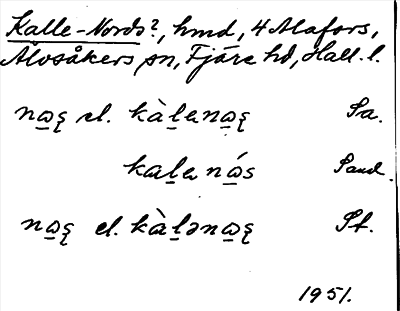 Kalle-Nords?, hmd, 4 Alafors,
Älvsåkers sn, Fjäre hd, Hall. l.
no̲ʂ el. kàl̲ano̲ʂ Sa.
kal̲a nó̲s Sand.
no̲ʂ el. kàl̲əno̲ʂ Pf.
1951.